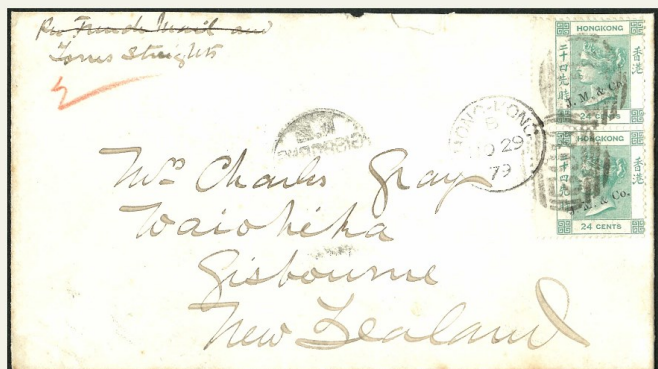 Per French Mail and
Torres Straights
HONG-KONG
B
NO 29
79
HONGKONG
二十四先時
香港
J. M. & Co.
24 CENTS
HONGKONG
二十四先時
香港
J. M. & Co.
24 CENTS
Mrs Charles Gray
Waiohika
Gisbourne
New Zealand